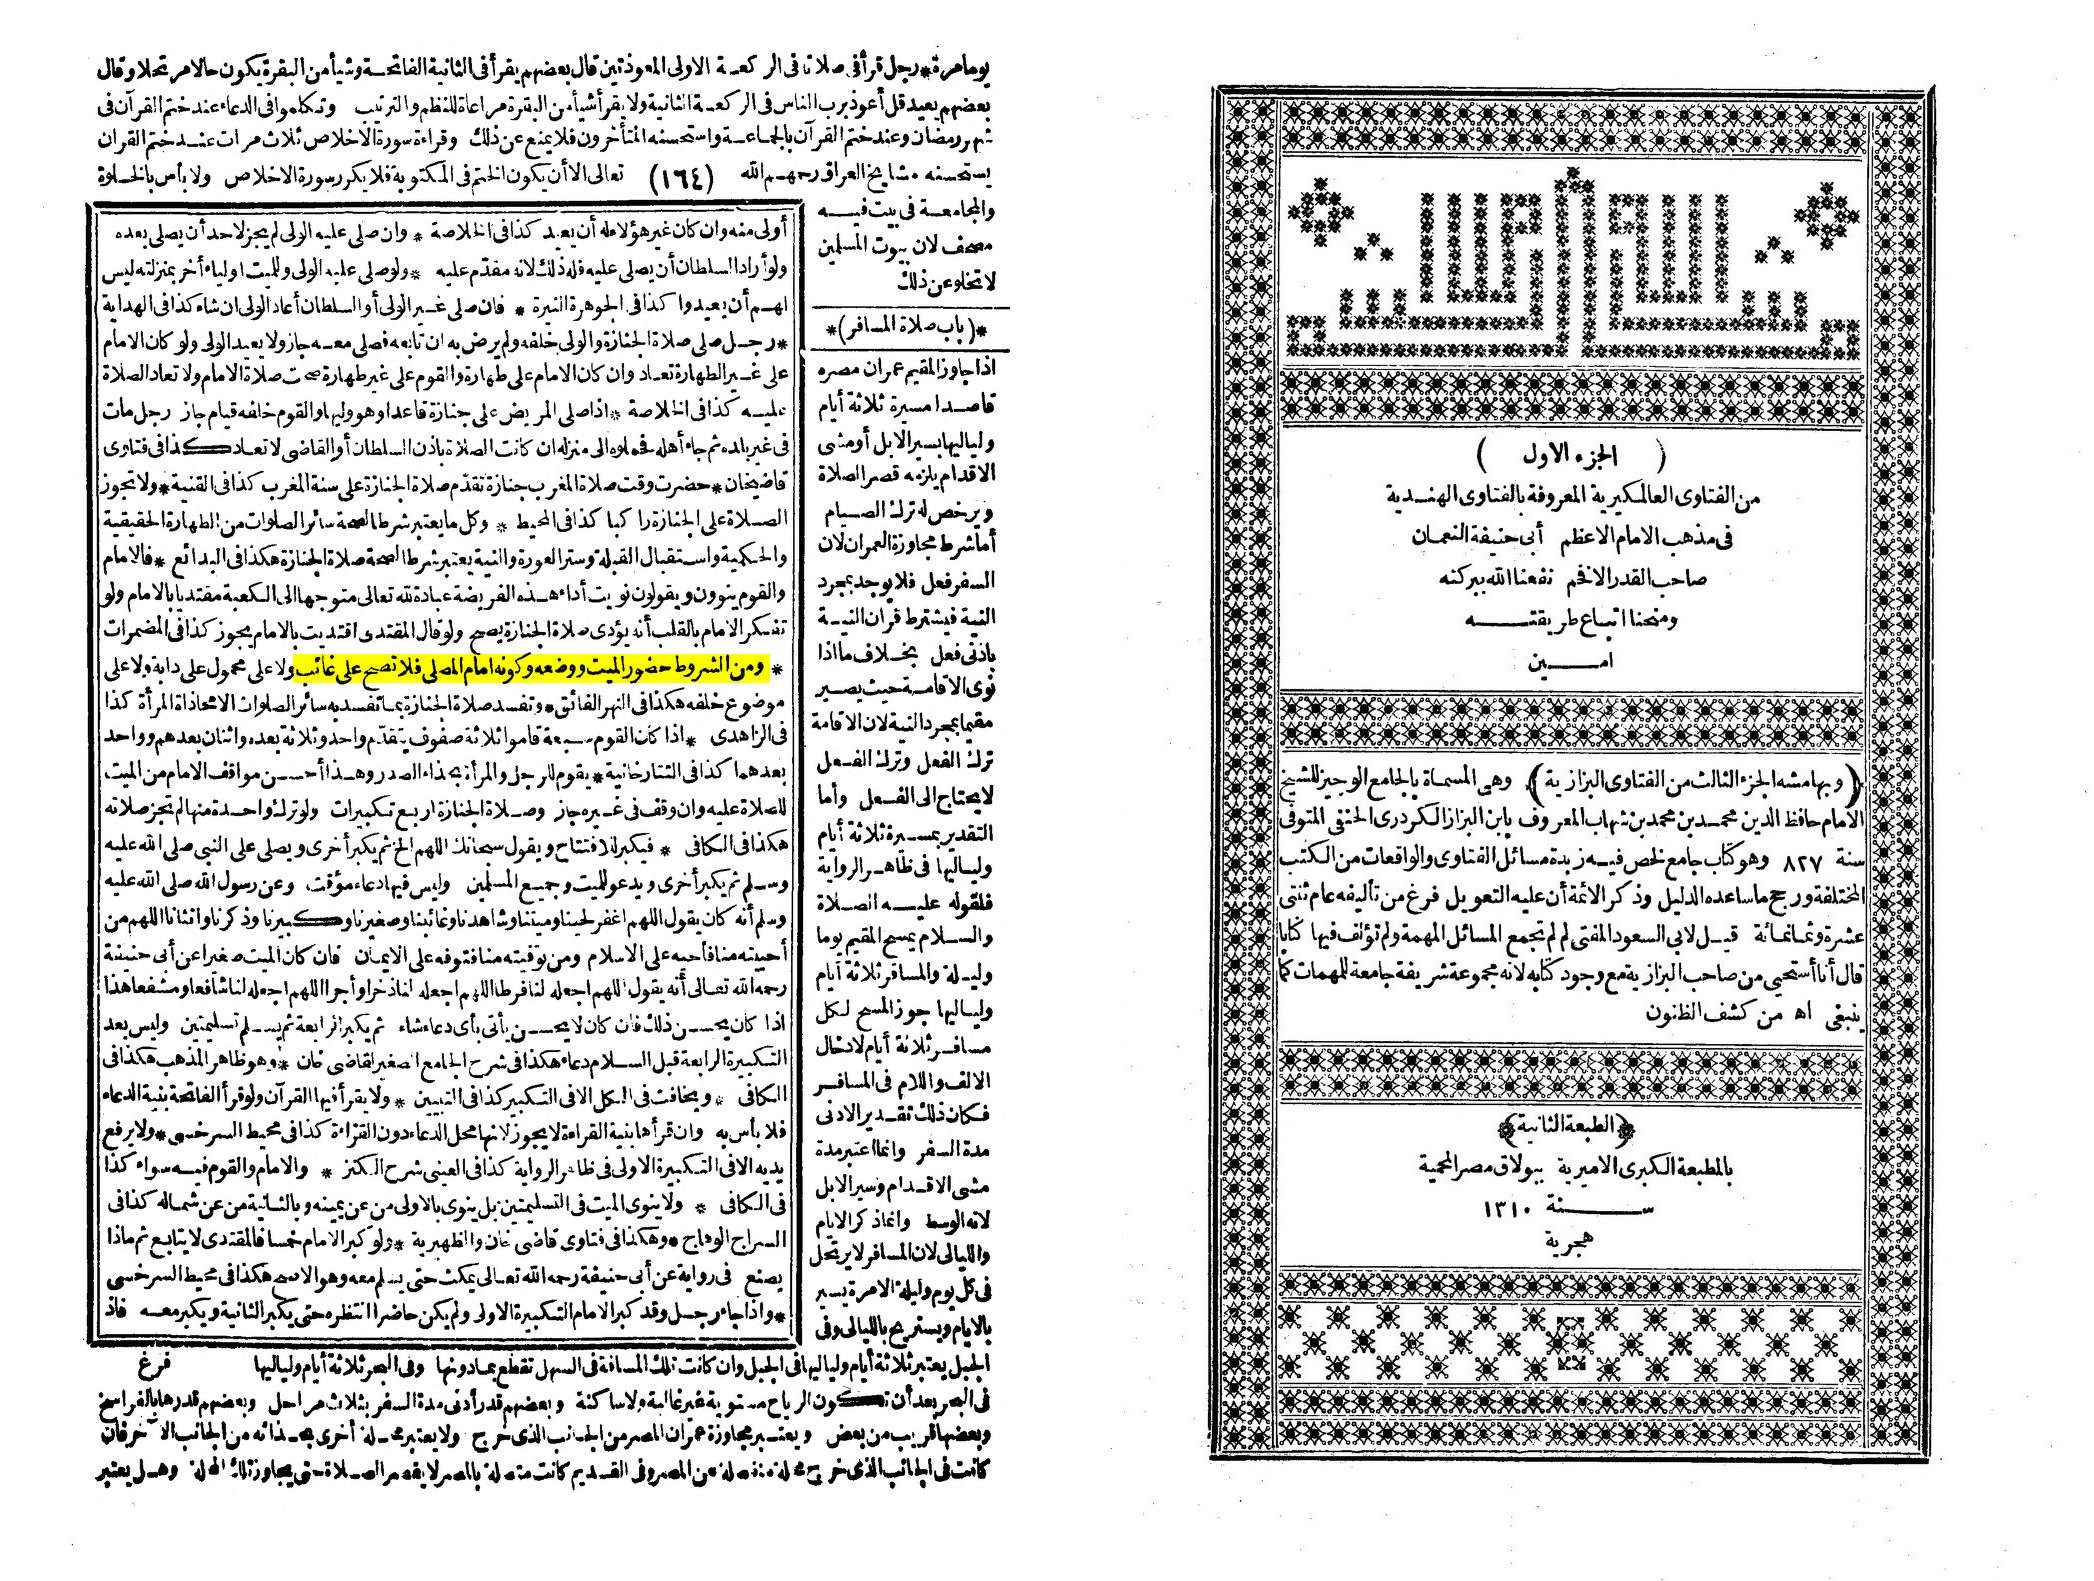 بسم الله الرحمن الرحيم
( الجزء الاول )
من الفتاوى العالمكيرية المعروفة بالفتاوى الهندية
فى مذهب الامام الاعظم أبى حنيفة النعمان
صاحب القدر الافخم نفعنا الله ببركته
ومنحنا اتباع طريقته
امين
(وبهامشه الجزء الثالث من الفتاوى البزازية) وهى المسماة بالجامع الوجيز للشيخ
الامام حافظ الدين محمد بن محمد بن شهاب المعروف بابن البزاز الكردرى الحنفى المتوفى
سنة ٨٢٧ وهو كتاب جامع لخص فيه زبدة مسائل الفتاوى والواقعات من الكتب
المختلفة ورجح ما ساعده الدليل وذكر الائمة أن عليه التعويل فرغ من تأليفه عام ثنتى
عشرة وثمانمائة قيل لابى السعود المفتى لم لم تجمع المسائل المهمة ولم تؤلف فيها كتابا
قال أنا أستحيى من صاحب البزازية مع وجود كتابه لانه مجموعة شريفة جامعة للمهمات كما
ينبغى اه من كشف الظنون
(الطبعة الثانية)
بالمطبعة الكبرى الاميرية ببولاق مصر المحمية
سنة ١٣١٠
هجرية
يوما مرة * رجل قرأ فى صلاته فى الركعة الاولى المعوذتين قال بعضهم يقرأ فى الثانية الفاتحة وشيأ من البقرة يكون حالا مرتحلا وقال
بعضهم يعيد قل أعوذ برب الناس فى الركعة الثانية ولا يقرأ شيأ من البقرة مراعاة للنظم والترتيب وتكلموا فى الدعاء عند ختم القرآن فى
شهر رمضان وعند ختم القرآن بالجماعة واستحسنه المتأخرون فلا يمنع عن ذلك وقراءة سورة الاخلاص ثلاث مرات عند ختم القرآن
يستحسنه مشايخ العراق رحمهم الله (١٦٤) تعالى الا أن يكون الختم فى المكتوبة فلا يكرر سورة الاخلاص ولا بأس بالخلوة
والمجامعة فى بيت فيه
مصحف لان بيوت المسلمين
لا تخلو عن ذلك
*(باب صلاة المسافر)*
اذا جاوز المقيم عمران مصره
قاصدا مسيرة ثلاثة أيام
ولياليها بسير الابل أو مشى
الاقدام يلزمه قصر الصلاة
ويرخص له ترك الصيام
أما شرط مجاوزة العمران لان
السفر فعل فلا يوجد بمجرد
النية فيشترط قران النية
بادنى فعل بخلاف ما اذا
نوى الاقامة حيث يصير
مقيما بمجرد النية لان الاقامة
ترك الفعل وترك الفعل
لا يحتاج الى الفعل وأما
التقدير بمسيرة ثلاثة أيام
ولياليها فى ظاهر الرواية
فلقوله عليه الصلاة
والسلام يمسح المقيم يوما
وليلة والمسافر ثلاثة أيام
ولياليها جوز المسح لكل
مسافر ثلاثة أيام لادخال
الالف واللام فى المسافر
فكان ذلك تقدير الادنى
مدة السفر وانما اعتبر مدة
مشى الاقدام وسير الابل
لانه الوسط وانما ذكر الايام
والليالى لان المسافر لا يرتحل
فى كل يوم وليلة الا مرة يسير
بالايام ويستريح بالليالى وفى
أولى منه وان كان غير هؤلاء له أن يعيد كذا فى الخلاصة * وان صلى عليه الولى لم يجز لاحد أن يصلى بعده
ولو أراد السلطان أن يصلى عليه فله ذلك لانه مقدم عليه * ولو صلى عليه الولى وللميت اولياء أخر بمنزلته ليس
لهم أن يعيدوا كذا فى الجوهرة النيرة * فان صلى غير الولى أو السلطان أعاد الولى ان شاء كذا فى الهداية
* رجل صلى صلاة الجنازة والولى خلفه ولم يرض به ان تابعه فصلى معه جاز ولا يعيد الولى ولو كان الامام
على غير الطهارة تعاد وان كان الامام على طهارة والقوم على غير طهارة صحت صلاة الامام ولا تعاد الصلاة
عليه كذا فى الخلاصة * اذا صلى المريض على جنازة قاعدا وهو وليها والقوم خلفه قيام جاز رجل مات
فى غير بلده ثم جاء أهله فحملوه الى منزله ان كانت الصلاة باذن السلطان أو القاضى لا تعاد كذا فى فتاوى
قاضيخان * حضرت وقت صلاة المغرب جنازة تقدم صلاة الجنازة على سنة المغرب كذا فى القنية * ولا تجوز
الصلاة على الجنازة راكبا كذا فى المحيط * وكل ما يعتبر شرط الصحة سائر الصلوات من الطهارة الحقيقية
والحكمية واستقبال القبلة وستر العورة والنية يعتبر شرطا لصحة صلاة الجنازة هكذا فى البدائع * فالامام
والقوم ينوون ويقولون نويت أداء هذه الفريضة عبادة لله تعالى متوجها الى الكعبة مقتديا بالامام ولو
تفكر الامام بالقلب أنه يؤدى صلاة الجنازة يصح ولو قال المقتدى اقتديت بالامام يجوز كذا فى المضمرات
* ومن الشروط حضور الميت ووضعه وكونه امام المصلى فلا تصح على غائب ولا على محمول على دابة ولا على
موضوع خلفه هكذا فى النهر الفائق * وتفسد صلاة الجنازة بما تفسد به سائر الصلوات الا محاذاة المرأة كذا
فى الزاهدى * اذا كان القوم سبعة قاموا ثلاثة صفوف يتقدم واحد وثلاثة بعده واثنان بعدهم وواحد
بعدهما كذا فى التتارخانية * يقوم للرجل والمرأة بحذاء الصدر وهذا أحسن مواقف الامام من الميت
للصلاة عليه وان وقف فى غيره جاز وصلاة الجنازة اربع تكبيرات ولو ترك واحدة منها لم تجز صلاته
هكذا فى الكافى * فيكبر للافتتاح ويقول سبحانك اللهم الخ ثم يكبر أخرى ويصلى على النبى صلى الله عليه
وسلم ثم يكبر أخرى ويدعو للميت وجميع المسلمين وليس فيها دعاء مؤقت وعن رسول الله صلى الله عليه
وسلم أنه كان يقول اللهم اغفر لحينا وميتنا وشاهدنا وغائبنا وصغيرنا وكبيرنا وذكرنا وانثانا اللهم من
أحييته منا فاحيه على الاسلام ومن توفيته منا فتوفه على الايمان فان كان الميت صغيرا عن أبى حنيفة
رحمه الله تعالى أنه يقول اللهم اجعله لنا فرطا اللهم اجعله لنا ذخرا وأجرا اللهم اجعله لنا شافعا ومشفعا هذا
اذا كان يحسن ذلك فان كان لا يحسن يأتى بأى دعاء شاء ثم يكبر الرابعة ثم يسلم تسليمتين وليس بعد
التكبيرة الرابعة قبل السلام دعاء هكذا فى شرح الجامع الصغير لقاضى خان * وهو ظاهر المذهب هكذا فى
الكافى * ويخافت فى الكل الا فى التكبير كذا فى التبيين * ولا يقرأ فيها القرآن ولو قرأ الفاتحة بنية الدعاء
فلا بأس به وان قرأها بنية القراءة لا يجوز لانها محل الدعاء دون القراءة كذا فى محيط السرخسى * ولا يرفع
يديه الا فى التكبيرة الاولى فى ظاهر الرواية كذا فى العينى شرح الكنز * والامام والقوم فيه سواء كذا
فى الكافى * ولا ينوى الميت فى التسليمتين بل ينوى بالاولى من عن يمينه وبالثانية من عن شماله كذا فى
السراج الوهاج * وهكذا فى فتاوى قاضى خان والظهيرية * ولو كبر الامام خمسا فالمقتدى لا يتابع ثم ماذا
يصنع فى رواية عن أبى حنيفة رحمه الله تعالى يمكث حتى يسلم معه وهو الاصح هكذا فى محيط السرخسى
* واذا جاء رجل وقد كبر الامام التكبيرة الاولى ولم يكن حاضرا انتظره حتى يكبر الثانية ويكبر معه فاذ
فرغ
الجبل يعتبر ثلاثة أيام ولياليها فى الجبل وان كانت تلك المسافة فى السهل تقطع بما دونها وفى البحر ثلاثة أيام ولياليها
فى البحر بعد أن تكون الرياح مستوية غير غالبة ولا ساكنة وبعضهم قدر أدنى مدة السفر بثلاث مراحل وبعضهم قدرها بالفراسخ
وبعضها قريب من بعض ويعتبر مجاوزة عمران المصر من الجانب الذى خرج ولا يعتبر محلة أخرى بحذائه من الجانب الآخر فان
كانت فى الجانب الذى خرج محلة منفصلة عن المصر وفى القديم كانت متصلة بالمصر لا يقصر الصلاة حتى يجاوز تلك المحلة وهل يعتبر